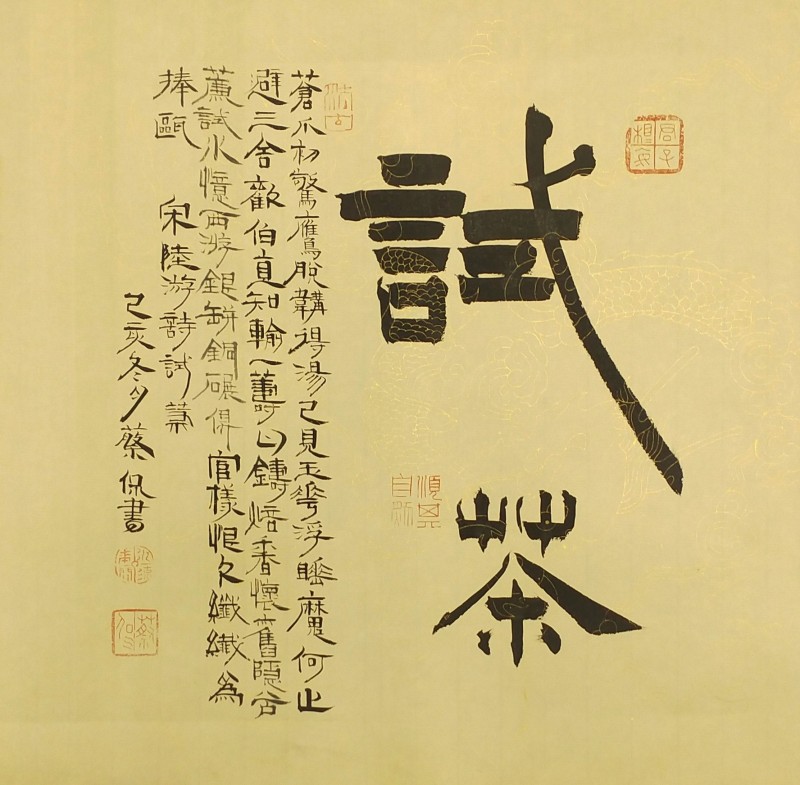 試茶
順其自然
蒼爪初驚鷹脫韝得湯已見玉華浮睡魔何止
避三舍歡伯直知輸一籌日鑄焙香懷舊隱谷
簾試水憶西游銀缾銅碾俱官樣恨欠纖纖為
捧甌
宋陸游詩試茶
己亥冬夕蔡侃書